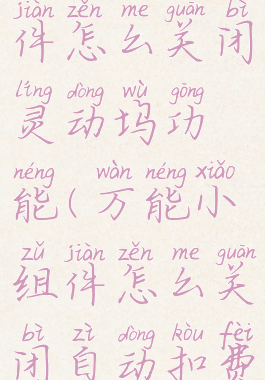 jiàn zěn me guān bì
件怎么关闭
líng dòng wù gōng
灵动坞功
néng wàn néng xiǎo
能(万能小
zǔ jiàn zěn me guān
组件怎么关
bì zì dòng kòu fèi
闭自动扣费